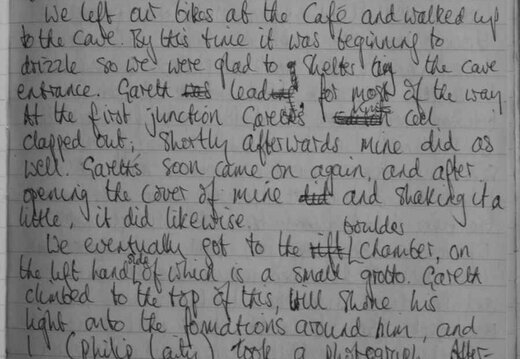 We left our bikes at the Café and walked up
to the cave. By this time it was beginning to
drizzle so we were glad to shelter the cave
entrance. Gareth lead for most of the way
At the first junction Gareth's cool
clapped out; shortly afterwards mine did as
well. Gareth's soon came on again, and after
opening the cover of mine did and shaking it a
little, it did likewise.
We eventually got to the rift boulder chamber, on
the left hand side of which is a small grotto. Gareth
climbed to the top of this, Will shone his
light onto the formations around him, and
I (Philip) took a photograph. After-